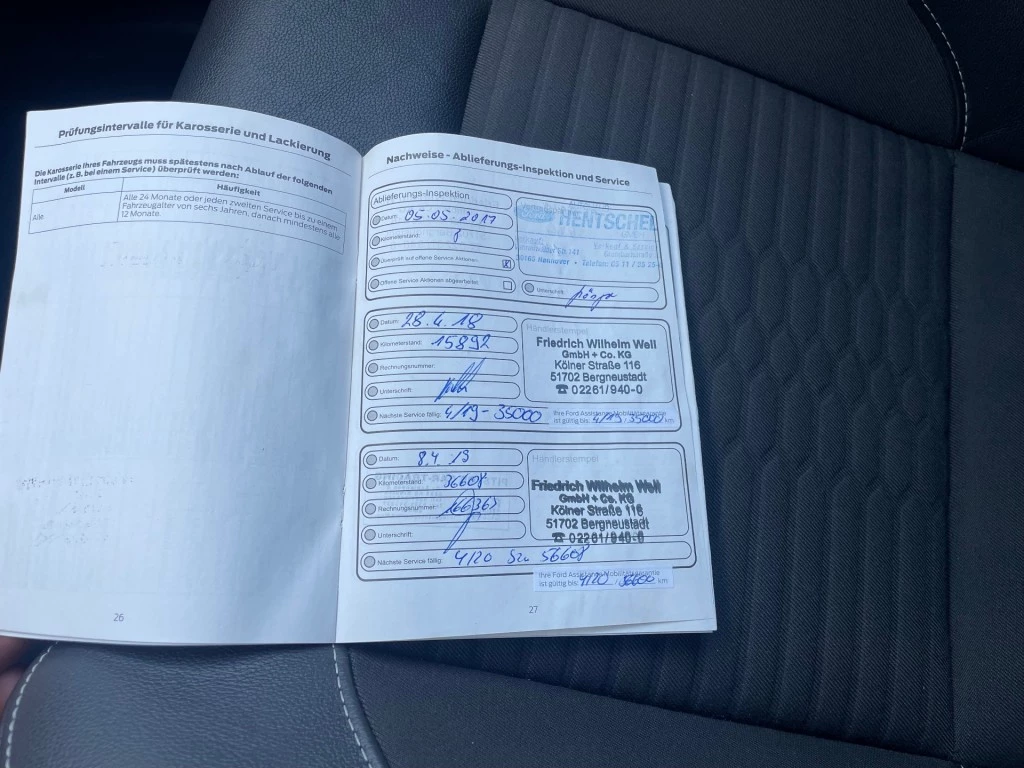 Prüfungsintervalle für Karosserie und Lackierung
Die Karosserie Ihres Fahrzeugs muss spätestens nach Ablauf der folgenden
Intervalle (z. B. bei einem Service) überprüft werden:
Modell
Häufigkeit
Alle
Alle 24 Monate oder jeden zweiten Service bis zu einem
Fahrzeugalter von sechs Jahren, danach mindestens alle
12 Monate.
26
Nachweise - Ablieferungs-Inspektion und Service
Ablieferungs-Inspektion
Datum: 05.05.2017
HENTSCHEL
Kilometerstand:
Überprüft auf offene Service Aktionen:
Hannover • Telefon: 05 11 /
Offene Service Aktionen abgearbeitet:
Unterschrift:
Datum: 28.4.18
Händlerstempel
Kilometerstand: 15892
Friedrich Wilhelm Weil
GmbH + Co. KG
Rechnungsnummer:
Kölner Straße 116
51702 Bergneustadt
Unterschrift:
☎ 02261/940-0
Nächste Service fällig: 4/19 - 35000
Ihre Ford Assistance Mobilitätsgarantie
ist gültig bis: 4/19, 35000 km
Datum: 8.4.19
Händlerstempel
Kilometerstand: 36608
Friedrich Wilhelm Weil
GmbH + Co. KG
Rechnungsnummer: 166367
Kölner Straße 116
51702 Bergneustadt
Unterschrift:
☎ 02261/940-0
Nächste Service fällig: 4/20 56608
Ihre Ford Assistance Mobilitätsgarantie
ist gültig bis: 4/20, 56600 km
27